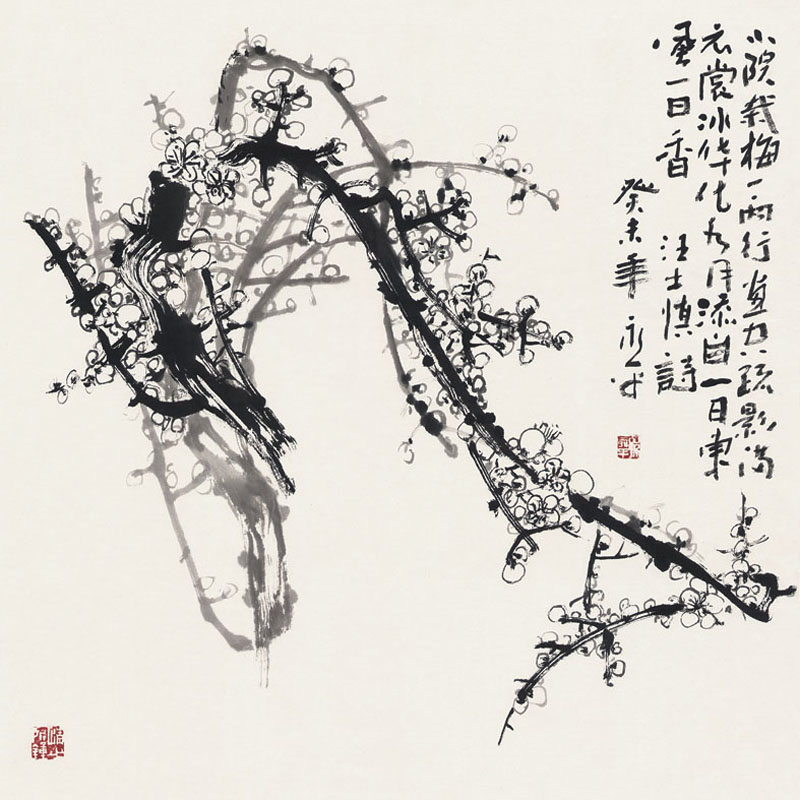 小院栽梅一兩行画空疏影满
衣裳冰华化水月添白一日東
風一日香 汪士慎詩
癸未年